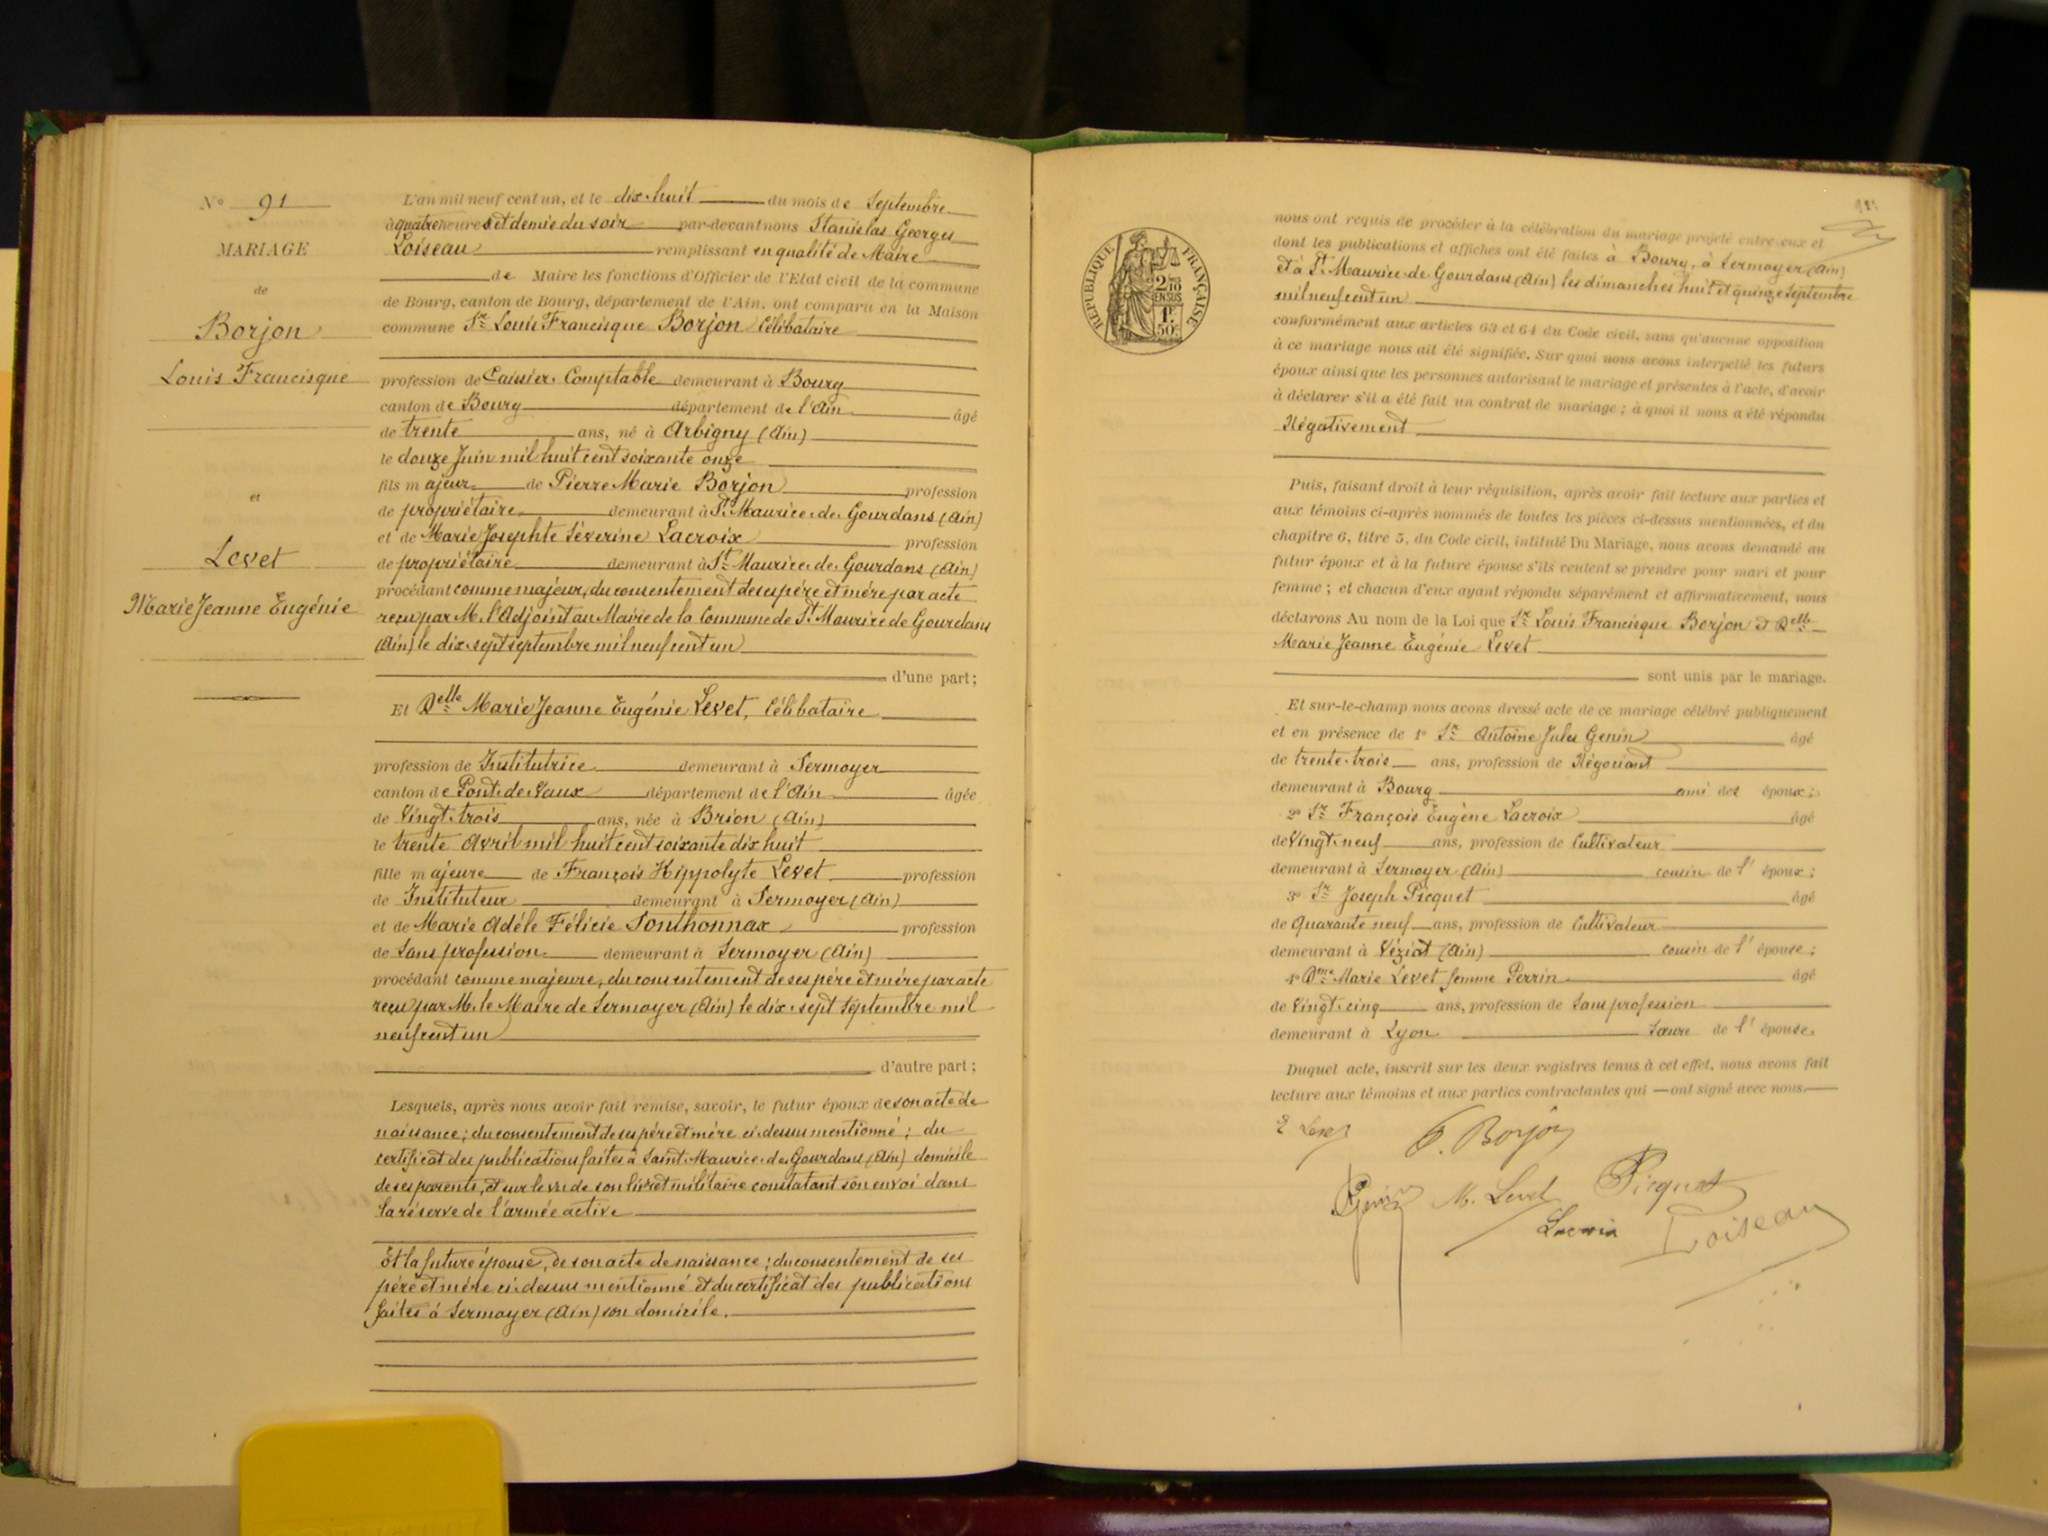 N° 91
MARIAGE
de
Borjon
Louis Francisque
et
Levet
Marie Jeanne Eugénie
L'an mil neuf cent un, et le dix-huit du mois de Septembre
à quatre heures et demie du soir par-devant nous Stanislas Georges
Loiseau remplissant en qualité de Maire
de Maire les fonctions d'Officier de l'Etat civil de la commune
de Bourg, canton de Bourg, département de l'Ain, ont comparu en la Maison
commune Sr Louis Francisque Borjon Célibataire
profession de Caissier Comptable demeurant à Bourg
canton de Bourg département de l'Ain âgé
de trente ans, né à Arbigny (Ain)
le douze Juin mil huit cent soixante onze
fils majeur de Pierre Marie Borjon profession
de propriétaire demeurant à St Maurice de Gourdans (Ain)
et de Marie Josephte Séverine Lacroix profession
de propriétaire demeurant à St Maurice de Gourdans (Ain)
procédant comme majeur, du consentement de ses père et mère par acte
reçu par M. l'Adjoint au Maire de la Commune de St Maurice de Gourdans
(Ain) le dix-sept septembre mil neuf cent un
d'une part;
Et Delle Marie Jeanne Eugénie Levet, Célibataire
profession de Institutrice demeurant à Sermoyer
canton de Pont-de-Vaux département de l'Ain âgée
de Vingt-trois ans, née à Brion (Ain)
le trente Avril mil huit cent soixante dix huit
fille majeure de François Hippolyte Levet profession
de Instituteur demeurant à Sermoyer (Ain)
et de Marie Adéle Félicie Sonthonnax profession
de Sans profession demeurant à Sermoyer (Ain)
procédant comme majeure, du consentement de ses père et mère par acte
reçu par M. le Maire de Sermoyer (Ain) le dix-sept Septembre mil
neuf cent un
d'autre part;
Lesquels, après nous avoir fait remise, savoir, le futur époux de son acte de
naissance; du consentement de ses père et mère ci-dessus mentionné; du
certificat des publications faites à Saint-Maurice-de-Gourdans (Ain) domicile
de ses parents, et sur le vu de son livret militaire constatant son envoi dans
la réserve de l'armée active
Et la future épouse, de son acte de naissance; du consentement de ses
père et mère ci-dessus mentionné et du certificat des publications
faites à Sermoyer (Ain) son domicile.
RÉPUBLIQUE FRANÇAISE
2/10 EN SUS
1F. 50c
nous ont requis de procéder à la célébration du mariage projeté entre eux et
dont les publications et affiches ont été faites à Bourg, à Sermoyer (Ain)
et à St Maurice-de-Gourdans (Ain) les dimanches huit et quinze Septembre
mil neuf cent un
conformément aux articles 63 et 64 du Code civil, sans qu'aucune opposition
à ce mariage nous ait été signifiée. Sur quoi nous avons interpellé les futurs
époux ainsi que les personnes autorisant le mariage et présentes à l'acte, d'avoir
à déclarer s'il a été fait un contrat de mariage; à quoi il nous a été répondu
Négativement
Puis, faisant droit à leur réquisition, après avoir fait lecture aux parties et
aux témoins ci-après nommés de toutes les pièces ci-dessus mentionnées, et du
chapitre 6, titre 5, du Code civil, intitulé Du Mariage, nous avons demandé au
futur époux et à la future épouse s'ils veulent se prendre pour mari et pour
femme; et chacun d'eux ayant répondu séparément et affirmativement, nous
déclarons Au nom de la Loi que Sr Louis Francisque Borjon et Delle
Marie Jeanne Eugénie Levet
sont unis par le mariage.
Et sur-le-champ nous avons dressé acte de ce mariage célébré publiquement
et en présence de 1° Sr Antoine Jules Genin âgé
de trente-trois ans, profession de Négociant
demeurant à Bourg ami des époux;
2° Sr François Eugène Lacroix âgé
de Vingt-neuf ans, profession de Cultivateur
demeurant à Sermoyer (Ain) cousin de l'époux;
3° Sr Joseph Picquet âgé
de Quarante neuf ans, profession de Cultivateur
demeurant à Vésiat (Ain) cousin de l'épouse;
4° Dme Marie Levet femme Perrin âgé
de Vingt-cinq ans, profession de Sans profession
demeurant à Lyon Sœur de l'épouse.
Duquel acte, inscrit sur les deux registres tenus à cet effet, nous avons fait
lecture aux témoins et aux parties contractantes qui ont signé avec nous.
E Levet F. Borjon
Genin M. Levet Picquet
Lacroix Loiseau